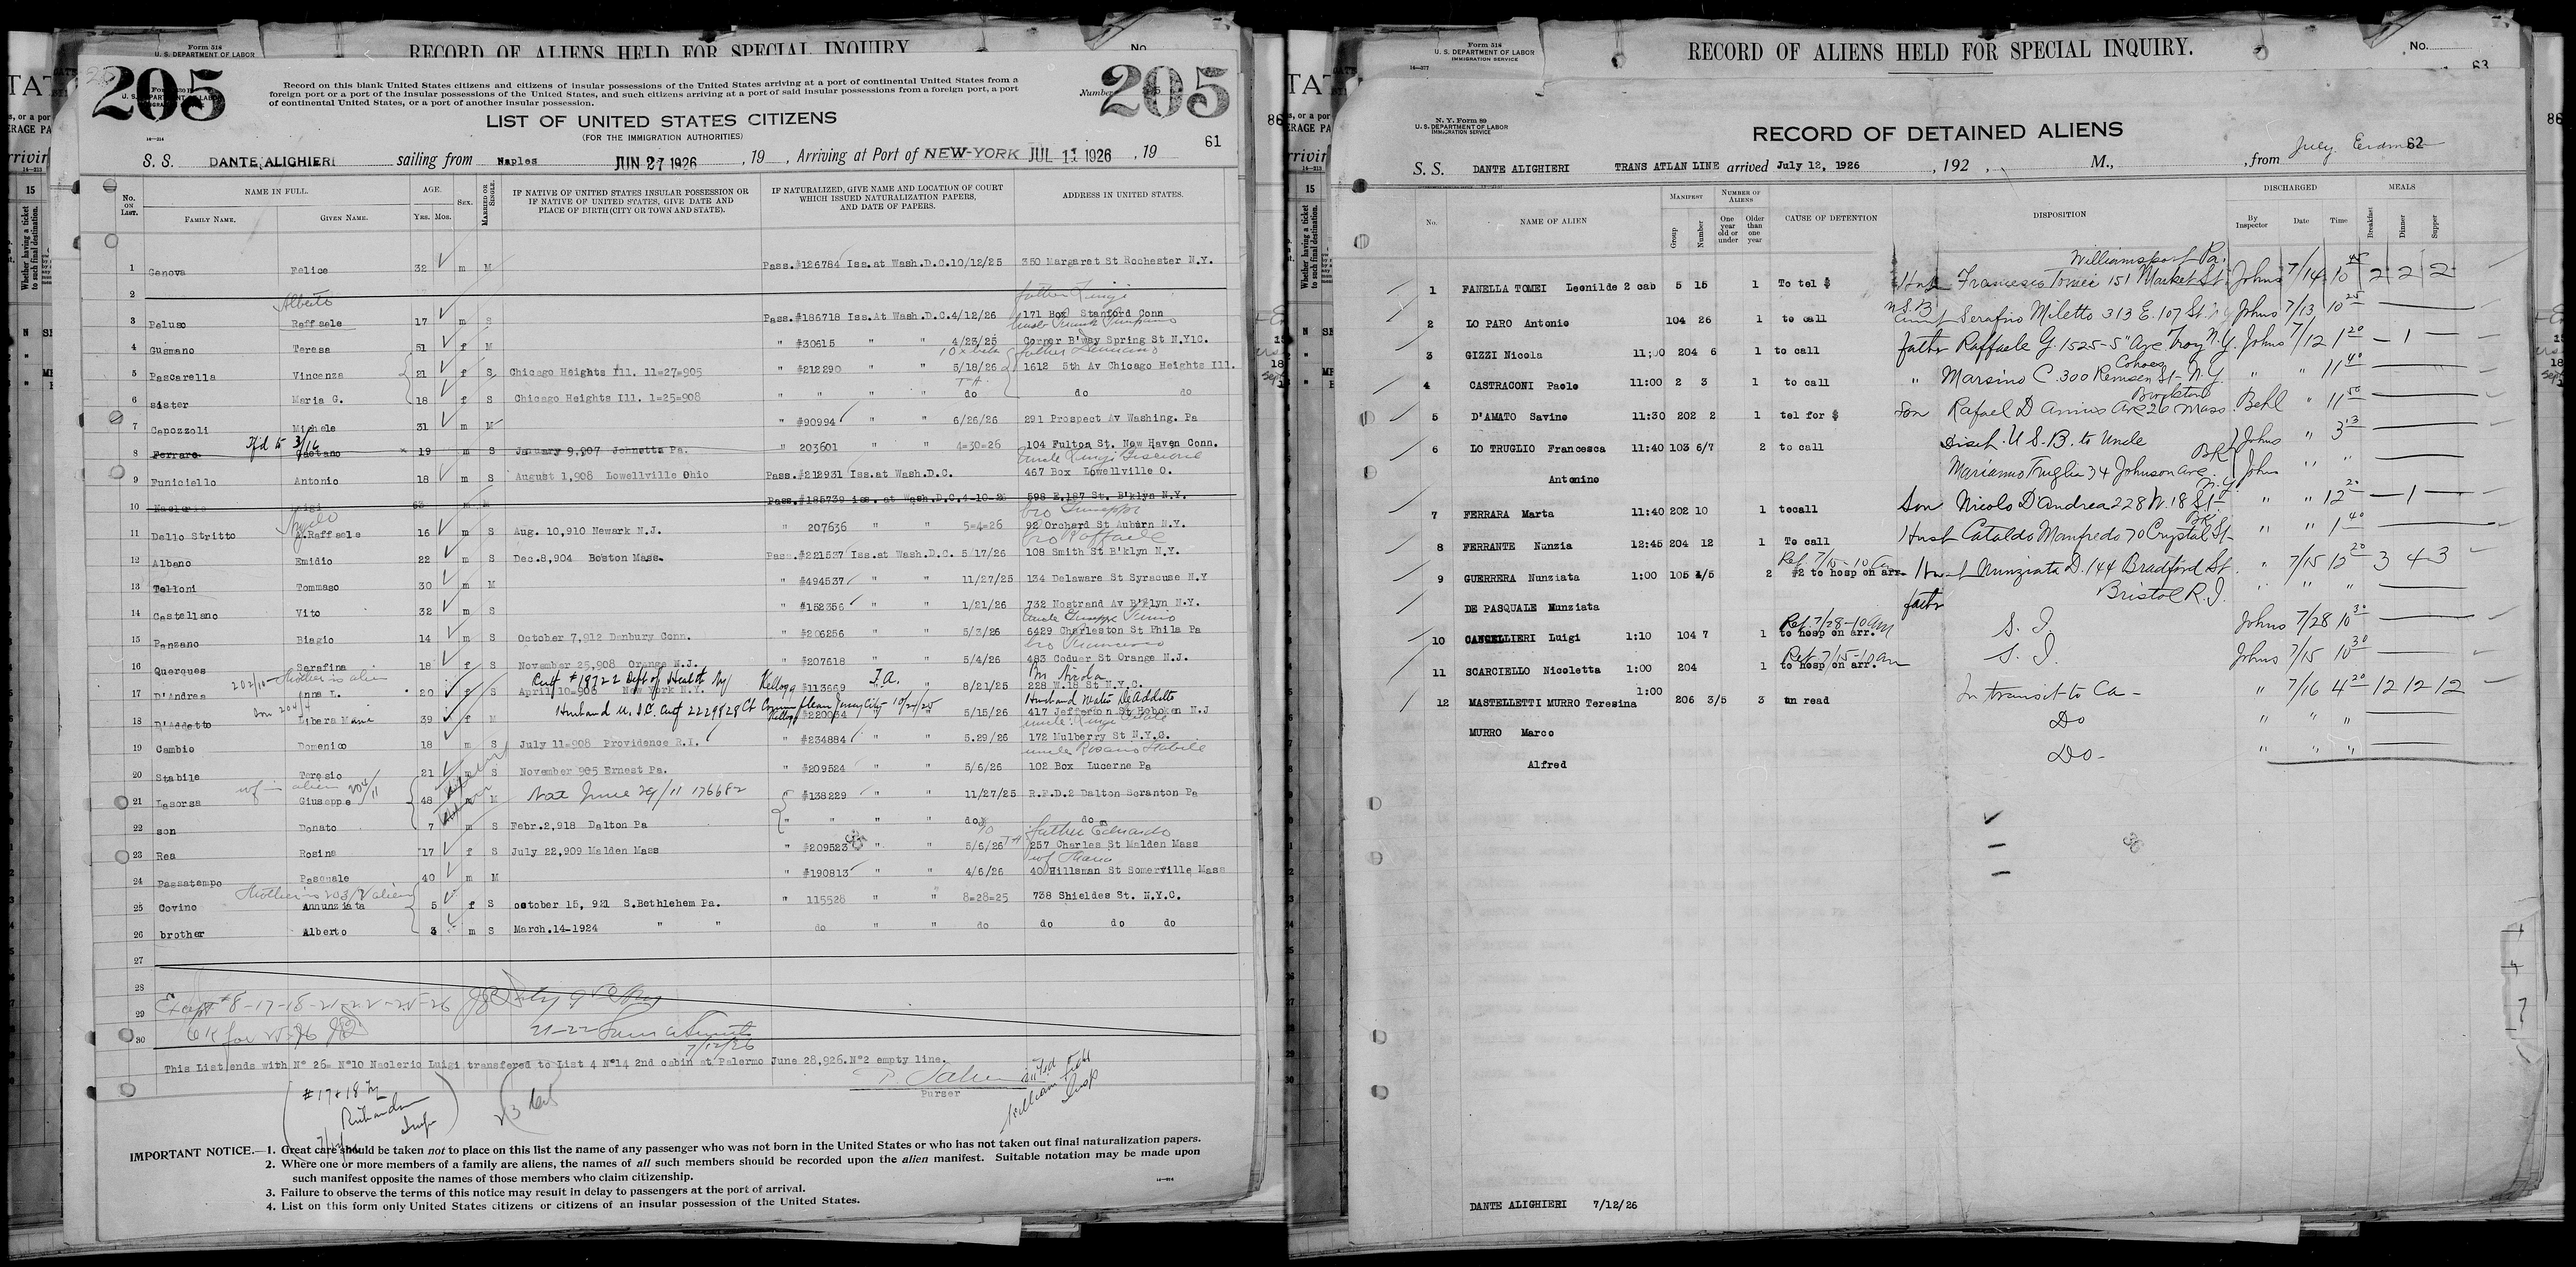 Form 514
U. S. DEPARTMENT OF LABOR
RECORD OF ALIENS HELD FOR SPECIAL INQUIRY
No.
205
205
Record on this blank United States citizens and citizens of insular possessions of the United States arriving at a port of continental United States from a
foreign port or a port of the insular possessions of the United States, and such citizens arriving at a port of said insular possessions from a foreign port, a port
of continental United States, or a port of another insular possession.
Number
LIST OF UNITED STATES CITIZENS
(FOR THE IMMIGRATION AUTHORITIES)
61
S. S. DANTE ALIGHIERI sailing from Naples JUN 27 1926, 19 , Arriving at Port of NEW-YORK JUL 11 1926, 19
No. ON LIST. NAME IN FULL. AGE. Sex. MARRIED OR SINGLE. IF NATIVE OF UNITED STATES INSULAR POSSESSION OR IF NATIVE OF UNITED STATES, GIVE DATE AND PLACE OF BIRTH (CITY OR TOWN AND STATE). IF NATURALIZED, GIVE NAME AND LOCATION OF COURT WHICH ISSUED NATURALIZATION PAPERS, AND DATE OF PAPERS. ADDRESS IN UNITED STATES.
FAMILY NAME. GIVEN NAME. Yrs. Mos.
1 Genova Felice 32 m M Pass.#126784 Iss.at Wash.D.C.10/12/25 350 Margaret St Rochester N.Y.
2
Alberto father Luigi
3 Peluso Raffaele 17 m S Pass.#186718 Iss.At Wash.D.C.4/12/26 171 Box Stanford Conn
4 Gusmano Teresa 51 f M " #30615 " " 4/23/25 Corner B'way Spring St N.Y1C.
father
5 Pascarella Vincenza 21 f S Chicago Heights Ill. 11=27=905 " #212290 " " 5/18/26 1612 5th Av Chicago Heights Ill.
6 sister Maria G. 18 f S Chicago Heights Ill. 1=25=908 " " " " do do do
7 Capozzoli Michele 31 m M " #90994 " " 6/26/26 291 Prospect Av Washing. Pa
Tfd to 3/16
8 Ferraro Gaetano x 19 m S January 9,907 Johnetta Pa. " 203601 " " 4=30=26 104 Fulton St. New Haven Conn.
9 Funiciello Antonio 18 m S August 1,908 Lowellville Ohio Pass.#212931 Iss.at Wash.D.C. 467 Box Lowellville O.
10 Naclerio Luigi 63 m M Pass.#185739 iss. at Wash.D.C.4-10-26 598 E.187 St. B'klyn N.Y.
Angelo bro Giuseppe
11 Dello Stritto A.Raffaele 16 m S Aug. 10,910 Newark N.J. " 207636 " " 5=4=26 92 Orchard St Auburn N.Y.
bro Raffaele
12 Albano Emidio 22 m S Dec.8,904 Boston Mass. Pass.#221537 Iss.at Wash.D.C. 5/17/26 108 Smith St B'klyn N.Y.
13 Telloni Tommaso 30 m M " #494537 " " 11/27/25 134 Delaware St Syracuse N.Y
14 Castellano Vito 32 m S " #152356 " " 1/21/26 732 Nostrand Av B'klyn N.Y.
15 Panzano Biagio 14 m S October 7,912 Danbury Conn. " #206256 " " 5/3/26 6429 Charleston St Phila Pa
bro Francesco
16 Querques Serafina 18 f S November 25,908 Orange N.J. " #207618 " " 5/4/26 483 Coduer St Orange N.J.
202/10 Mother is alien Cert #18722 Dept of Health NY Kellogg T.A. Bro Nicola
17 D'Andrea Anna L. 20 f S April 10=906 New York N.Y. #113669 " 8/21/25 228 W.18 St N.Y.C.
son 204/4 Husband U.S.C. Cert 2229828 Ct Common pleas Jersey City 10/21/25 Husband Matteo DeAddetto
18 D'Addetto Libera Maria 39 f M Kellogg #220034 " 5/15/26 417 Jefferson St Hoboken N.J
19 Cambio Domenico 18 m S July 11=908 Providence R.I. " #234884 " " 5.29/26 172 Mulberry St N.Y.C.
uncle Rosario Stabile
20 Stabile Teresio 21 m S November 905 Ernest Pa. " #209524 " " 5/6/26 102 Box Lucerne Pa
wf is alien 204/11
21 Lasorsa Giuseppe 48 m M Nat June 29/11 176682 " #138229 " " 11/27/25 R.F.D.2 Dalton Scranton Pa
22 son Donato 7 m S Febr.2,918 Dalton Pa " " " " do do
father Eduardo
23 Rea Rosina 17 f S July 22,909 Malden Mass " #209523 " " 5/6/26 257 Charles St Malden Mass
wf Maria
24 Passatempo Pasquale 40 m M " #190813 " " 4/6/26 40 Hillsman St Somerville Mass
Mother is 203/2 alien
25 Covino Annunziata 5 f S october 15, 921 S.Bethlehem Pa. " 115528 " " 8=28=25 738 Shieldes St. N.Y.C.
26 brother Alberto 3 m S March.14-1924 " " do " " do do do do
27
28
29 Except #8-17-18-21-22-25-26
30 OK for 25-26 21-22
7/12/26
This List ends with N° 26= N°10 Naclerio Luigi transfered to List 4 N°14 2nd cabin at Palermo June 28,926.N°2 empty line.
Purser
#17+18
Insp
IMPORTANT NOTICE.—1. Great care should be taken not to place on this list the name of any passenger who was not born in the United States or who has not taken out final naturalization papers.
2. Where one or more members of a family are aliens, the names of all such members should be recorded upon the alien manifest. Suitable notation may be made upon
such manifest opposite the names of those members who claim citizenship.
3. Failure to observe the terms of this notice may result in delay to passengers at the port of arrival.
4. List on this form only United States citizens or citizens of an insular possession of the United States.
Form 514
U. S. DEPARTMENT OF LABOR
IMMIGRATION SERVICE
RECORD OF ALIENS HELD FOR SPECIAL INQUIRY.
No.
63
N. Y. Form 89
U. S. DEPARTMENT OF LABOR
IMMIGRATION SERVICE
RECORD OF DETAINED ALIENS
62
S. S. DANTE ALIGHIERI TRANS ATLAN LINE arrived July 12, 1926 , 192 , M., , from
No. NAME OF ALIEN MANIFEST NUMBER OF ALIENS CAUSE OF DETENTION DISPOSITION DISCHARGED MEALS
Group Number One year old or under Older than one year By Inspector Date Time Breakfast Dinner Supper
Williamsport Pa.
1 FANELLA TOMEI Leonilde 2 cab 5 15 1 To tel $ Husb Francesco Tomei 151 Market St Johns 7/14 10 45 2 2 2
2 LO PARO Antonio 104 26 1 to call Serafino Miletto 313 E. 107 St. NY Johns 7/13 10 25
3 GIZZI Nicola 11;00 204 6 1 to call father Raffaele G. 1525-5" Ave. Troy N.Y. Johns 7/12 1 20 — 1 —
Cohoes
4 CASTRACONI Paolo 11:00 2 3 1 to call " Marsino C. 300 Remsen St- N.Y. " " 11 40
Brockton
5 D'AMATO Savino 11:30 202 2 1 tel for $ Son Rafael D Ave 26 Mass. Behl " 11 50
6 LO TRUGLIO Francesca 11:40 103 6/7 2 to call Disch. U.S.B. to Uncle Johns " 3 13
Antonino Marianno Truglio 34 Johnson Ave. BK Johns " "
N.Y.
7 FERRARA Marta 11:40 202 10 1 tocall Son Nicolo D'Andrea 228 W. 18 St- " " 12 20 — 1 —
BK
8 FERRANTE Nunzia 12:45 204 12 1 To call Husb Cataldo Manfredo 70 Crystal St- " " 1 40
Rel. 7/15-10 am
9 GUERRERA Nunziata 1:00 105 4/5 2 #2 to hosp on arr. Nunziata D. 144 Bradford St. " 7/15 12 20 3 4 3
DE PASQUALE Nunziata father Bristol R.I. " " "
Rel. 7/28-10 am
10 CANCELLIERI Luigi 1:10 104 7 1 to hosp on arr. S. I. Johns 7/28 10 30
Rel. 7/15-10 am
11 SCARCIELLO Nicoletta 1:00 204 1 to hosp on arr. S. I. Johns 7/15 10 30
1:00
12 MASTELLETTI MURRO Teresina 206 3/5 3 un read In transit to Ca- " 7/16 4 20 12 12 12
MURRO Marco Do " " "
Alfred Do- " " "
DANTE ALIGHIERI 7/12/26